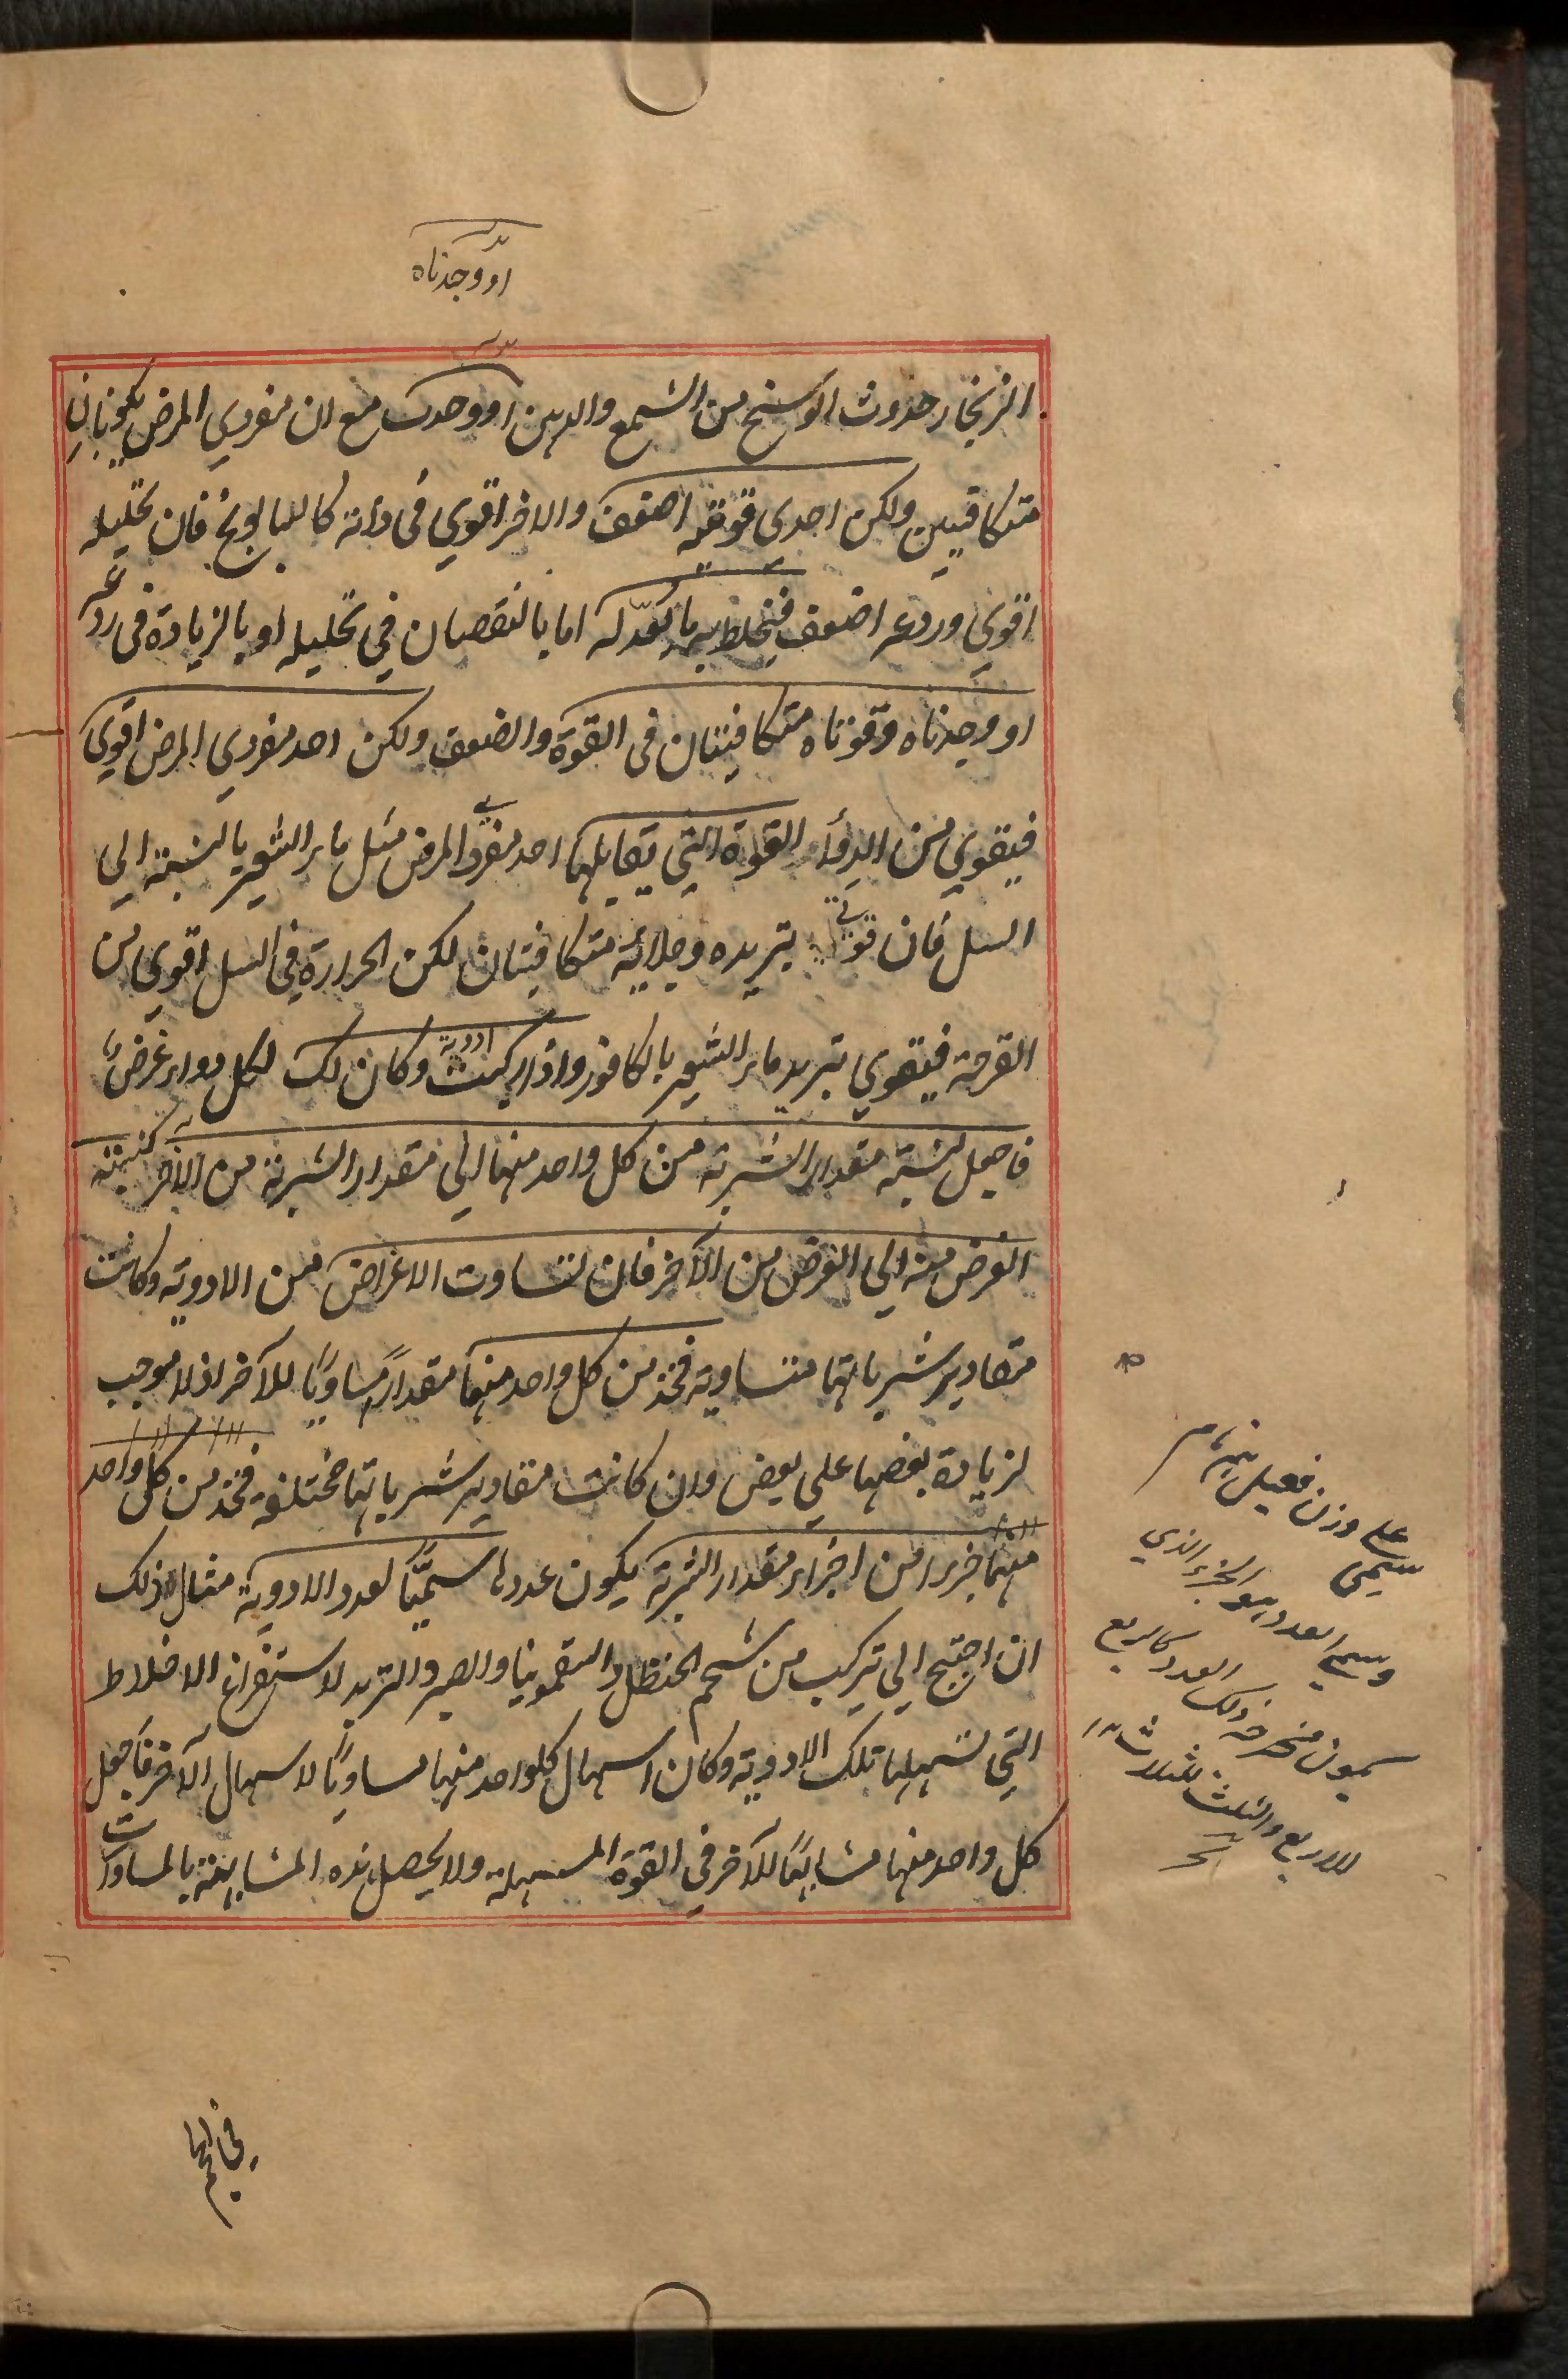 او وجدناه
الزنجار حدوث الوسخ من الشمع والدهن او وجدت مع ان مفردي المرض يكونان
متكافيين ولكن احدي قوتيه اضعف والاخر اقوي في ذاته كالبابونج فان تحليله
اقوي وردعه اضعف فيخلط به ما يعدّله اما بالنقصان في تحليله او بالزيادة في ردعه
او وجدناه وقوتاه متكافيتان في القوة والضعف ولكن احد مفردي المرض اقوي
فيقوي من الدواء القوة التي يقابلها احد مفردي المرض مثل ماء الشعير بالنسبة الي
السل فان قوتي تبريده وجلائه متكافيتان لكن الحرارة في السل اقوي من
القرحة فيقوي تبريد ماء الشعير بالكافور واذا ركبت ادوية وكان لك لكل دواء غرض ما
فاجعل نسبة مقدار الشربة من كل واحد منها الي مقدار الشربة من الآخر كنسبة
الغرض منه الي الغرض من الآخر فان تساوت الاغراض من الادوية وكانت
مقادير شرباتها متساوية فخذ من كل واحد منها مقدارًا مساويًا للآخر اذ لا موجب
لزيادة بعضها علي بعض وان كانت مقادير شرباتها مختلفة فخذ من كل واحد
منها جزءا من اجزاء مقدار الشربة يكون عددها سميًّا لعدد الادوية مثال ذلك
ان احتيج الي تركيب من شحم الحنظل والسقمونيا والصبر والتربد لاستفراغ الاخلاط
التي تسهلها تلك الادوية وكان اسهال كلواحد منها مساويًا لاسهال الآخر فاجعل
كل واحد منها مشابهًا للآخر في القوة المسهلة ولا يحصل هذه المشابهة بالمساوات
علي وزن فعيل
سمي
وسمي العدد هو الجزء الذي
يكون مخرجه ذلك العدد كالربع
للاربع والثلث للثلاث